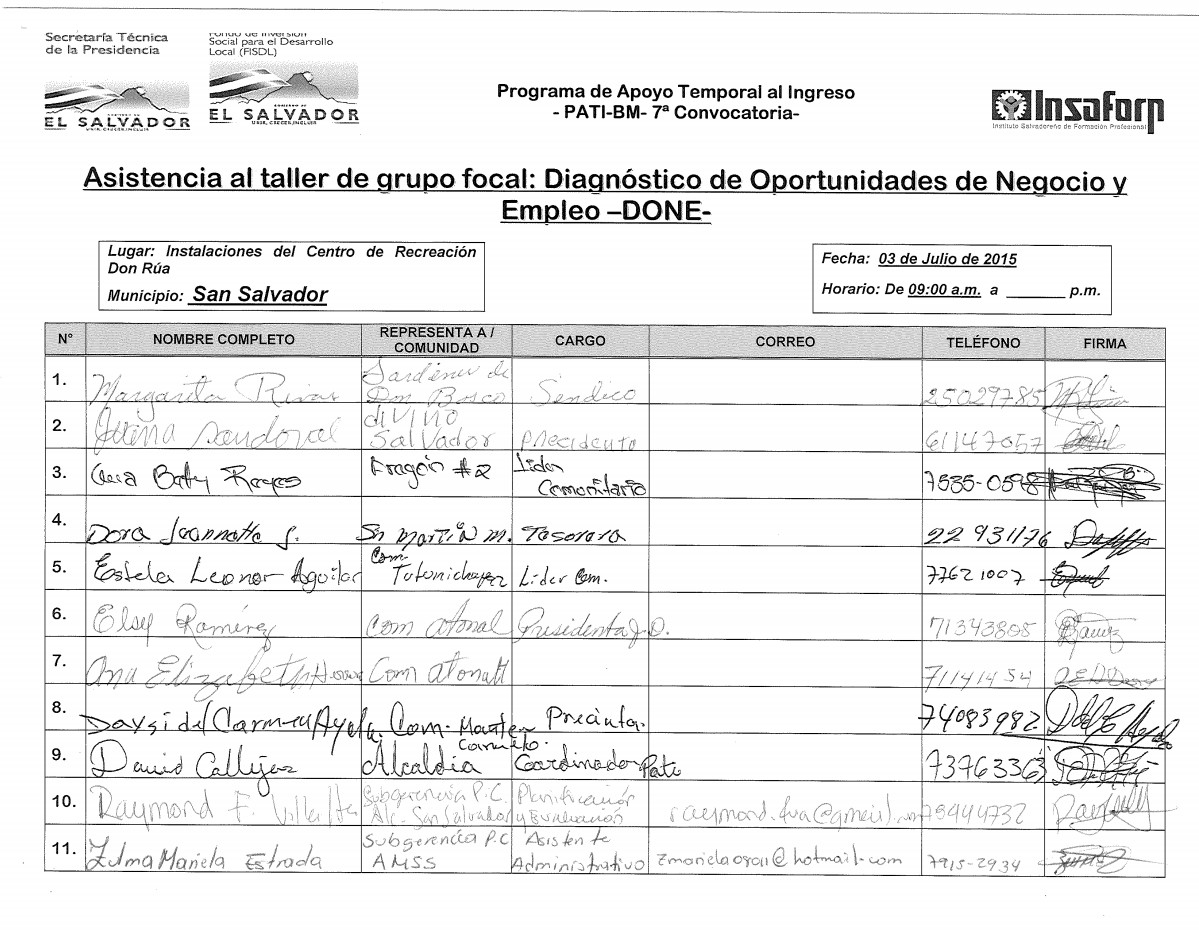 Secretaría Técnica
de la Presidencia
Fondo de Inversión
Social para el Desarrollo
Local (FISDL)
EL SALVADOR
UNIR, CRECER, INCLUIR
GOBIERNO DE
EL SALVADOR
UNIR, CRECER, INCLUIR
Programa de Apoyo Temporal al Ingreso
- PATI-BM- 7ª Convocatoria-
Insaforp
Instituto Salvadoreño de Formación Profesional
Asistencia al taller de grupo focal: Diagnóstico de Oportunidades de Negocio y
Empleo –DONE-
Lugar: Instalaciones del Centro de Recreación
Don Rúa
Municipio: San Salvador
Fecha: 03 de Julio de 2015
Horario: De 09:00 a.m. a ______ p.m.
N° NOMBRE COMPLETO REPRESENTA A / COMUNIDAD CARGO CORREO TELÉFONO FIRMA
1. Margarita Rivas Jardines de Don Bosco Sindico 25029785
2. Juana Sandoval divino Salvador precidenta 61147057
3. Ana Baty Reyes Aragón #2 Lider Comonitario 7535-0598
4. Dora Jeannette S. Sn Martín M. Tesorera 22 931176
5. Estela Leonor Aguilar Com. Lider Com. 77621007
6. Elsy Ramírez Com atonal Presidenta J.D. 71343808
7. Ana Elizabeth Com atonatl 71141454
8. Daysi del Carmen Ayala Com. Precinta. 74083982
9. David Callejas Alcaldia Cordinador Pati 73763363
10. Raymond F. Villalta Subgerencia P.C. Alc. San Salvador Planificación y Evaluación raymond.fva@gmail.com 75444732
11. Zulma Mariela Estrada Subgerencia P.C AMSS Asistente Administrativo zmariela0801@hotmail.com 7915-2934